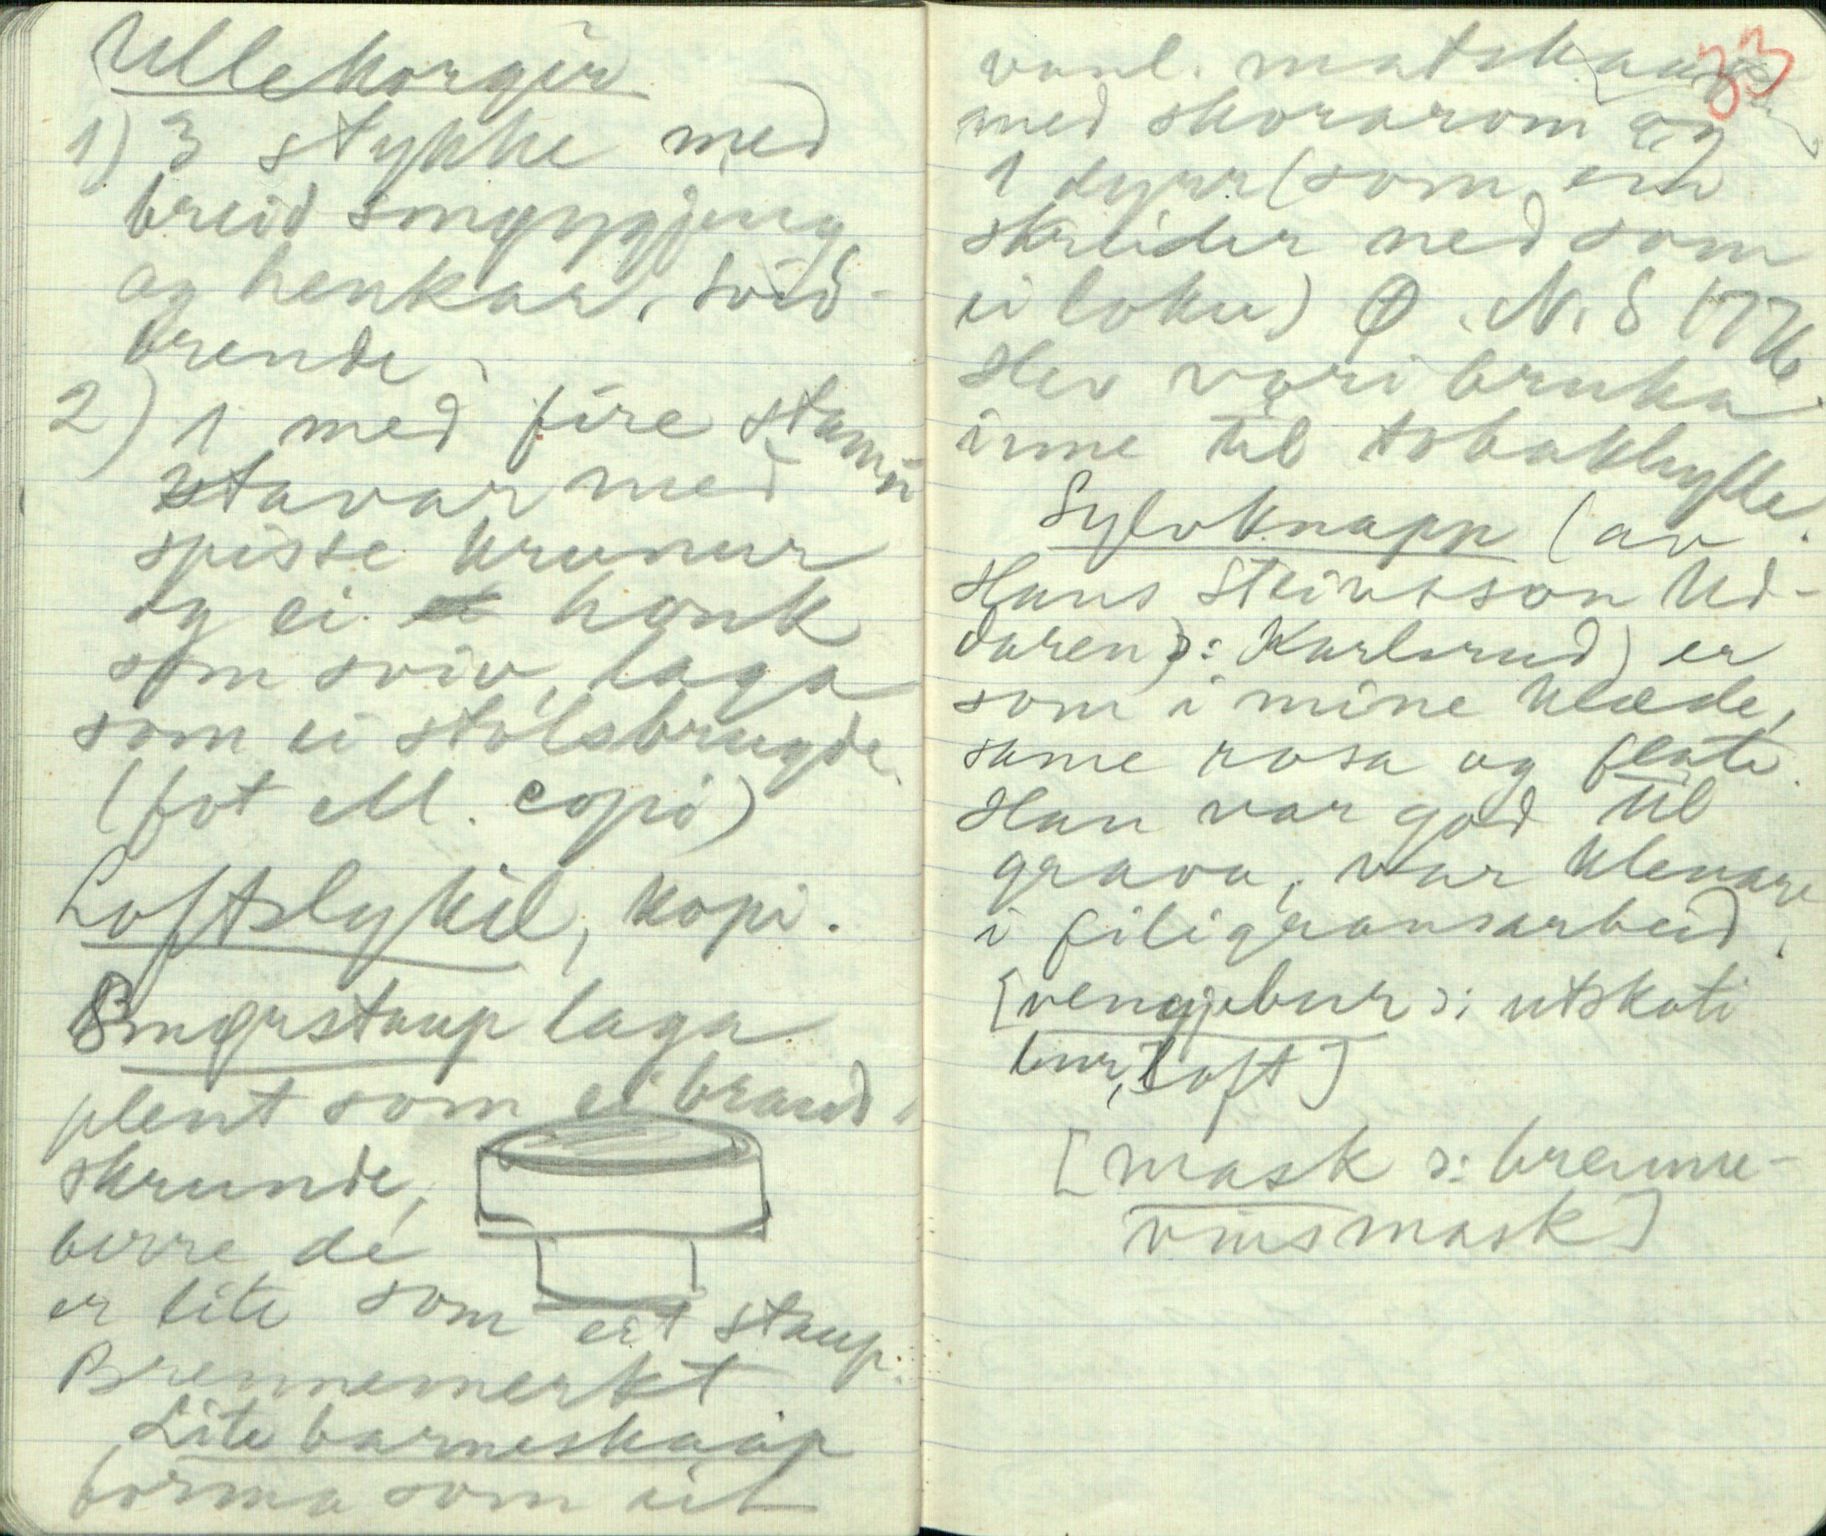 Ullekorgir
1) 3 stykke med
breid smgygjeng
og henkar, svid-
brende.
2) 1 med fire stamn
stavar med
spisse krunur
og ei honk
som sviv, laga
som ei stólsbrugde
(fot ell. copi)
Loftslykil, kopi.
Smørstaup laga
plent som ei brand-
skrunde,
berre de
er lite som eit staup.
Brennemerkt
Lite barneskaap
forma som eit
33
vanl. matskaap
med skorarom og
1 dyrr (som ein
skreider ned som
ei loku) Ø. N. S 1776
Hev vori bruka
inne til tobakkhylle.
Sylvknapp (av
Hans Steinsson Ud-
daren ɔ: Karlsrud) er
som i mine klæde,
same rosa og flate.
Han var god til
grava, var klenare
i filigransarbeid.
[vengjebur ɔ: utskoti
bur, loft]
[mask ɔ: brenne-
vinsmask]